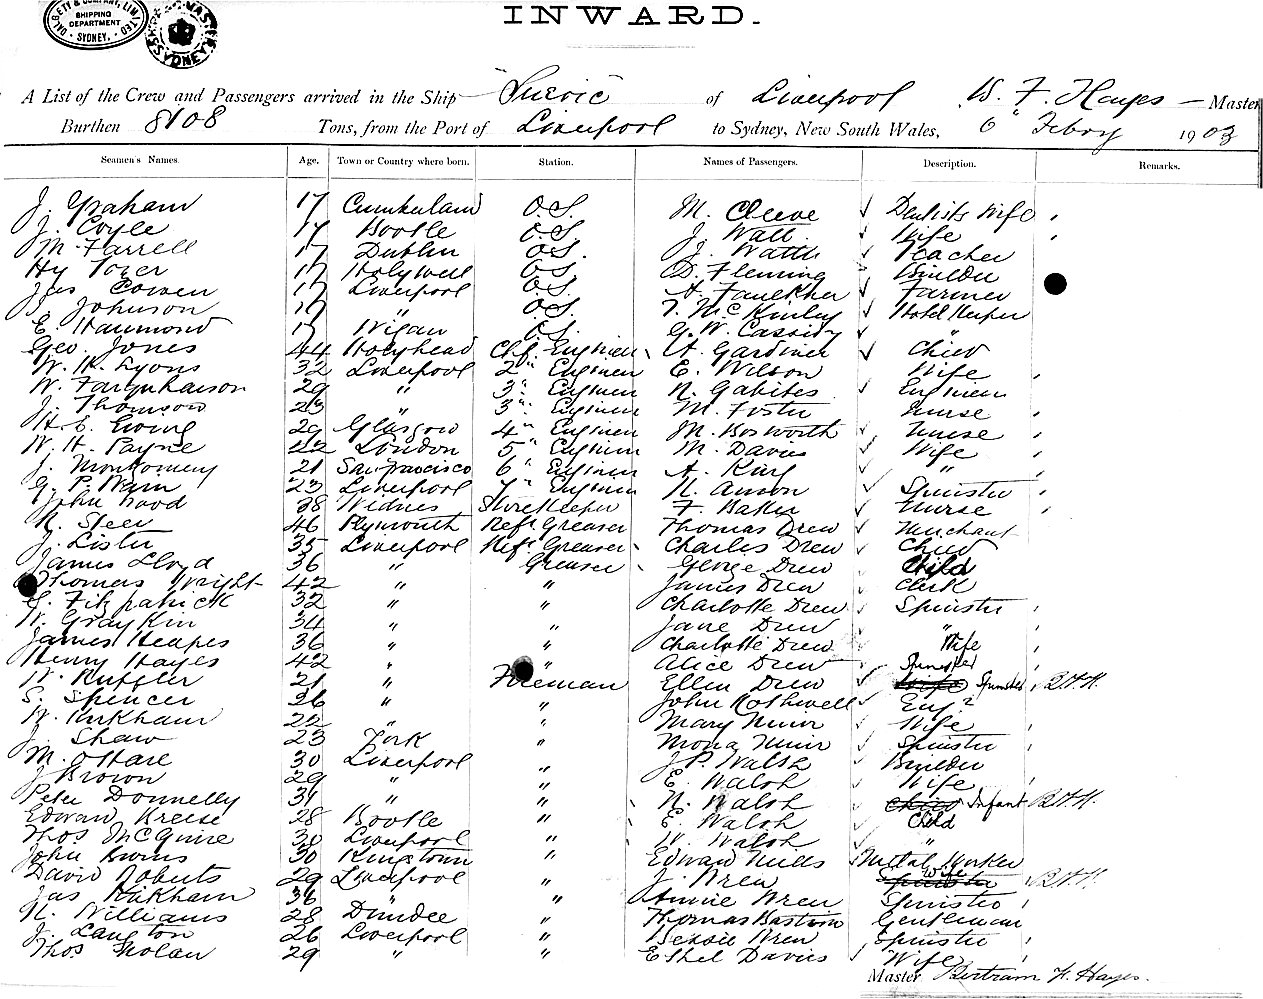 DALGETY & COMPANY, LIMITED
SHIPPING DEPARTMENT
SYDNEY.
SYDNEY
INWARD.
A List of the Crew and Passengers arrived in the Ship "Suevic" of Liverpool B. F. Hayes — Master
Burthen 8108 Tons, from the Port of Liverpool to Sydney, New South Wales, 6" Febry 1903
Seamen's Names. Age. Town or Country where born. Station. Names of Passengers. Description. Remarks.
J. Graham 17 Cumberland O.S. M. Cleeve Dentists Wife
J. Coyle 17 Bootle O.S. J. Watt Wife
M. Farrell 17 Dublin O.S. J. Watt Teacher
Hy Tozer 17 Holywell O.S. D. Fleming Builder
Jas Cowen 17 Liverpool O.S. A. Faulkner Farmer
J. Johnson 17 " O.S. T. McKinley Hotel Keeper
E. Hammond 17 Wigan O.S. G. W. Cassidy "
Geo. Jones 44 Holyhead Chf. Engineer A. Gardiner Child
W. H. Lyons 32 Liverpool 2" Engineer E. Wilson Wife
W. Farquharson 29 " 3" Engineer N. Gabites Engineer
J. Thomson 23 " 3" Engineer M. Foster Nurse
H. E. Ewing 29 Glasgow 4" Engineer M. Bosworth Nurse
W. H. Payne 22 London 5" Engineer M. Davies Wife
J. Montgomery 21 San Francisco 6" Engineer A. King "
G. P. Warn 23 Liverpool 7" Engineer N. Anson Spinster
John Wood 38 Widnes Storekeeper F. Baker Nurse
R. Steer 46 Plymouth Refr. Greaser Thomas Drew Merchant
J. Lister 35 Liverpool Refr. Greaser Charles Drew Child
James Lloyd 36 " Greaser George Drew Child
Thomas Wright 42 " " James Drew Clerk
Fitzpatrick 32 " " Charlotte Drew Spinster
W. Graykin 34 " " Jane Drew "
James Heapes 36 " " Charlotte Drew Wife
Henry Hayes 42 " " Alice Drew Spinster
21 " Fireman Ellen Drew Wife Spinster B.F.H.
S. Spencer 36 " " John Rothwell Engr
W. Kirkham 22 " " Mary Muir Wife
J. Shaw 23 York " Mona Muir Spinster
M. O'Hare 30 Liverpool " J. P. Walsh Builder
J Brown 29 " " E. Walsh Wife
Peter Donnelly 31 " " N. Walsh Child Infant B.F.H.
Edward Kreese 28 Bootle " E. Walsh Child
Thos McGuire 30 Liverpool " W. Walsh "
John 30 Kingstown " Edward Mills Metal Worker
David Roberts 29 Liverpool " J. Wren Spinster Wife B.F.H.
Jas Kirkham 36 " Annie Wren Spinster
R. Williams 28 Dundee " Thomas Gentleman
J. Langton 26 Liverpool " Bessie Wren Spinster
Thos Nolan 29 " " Ethel Davies Wife
Master Bertram F. Hayes.